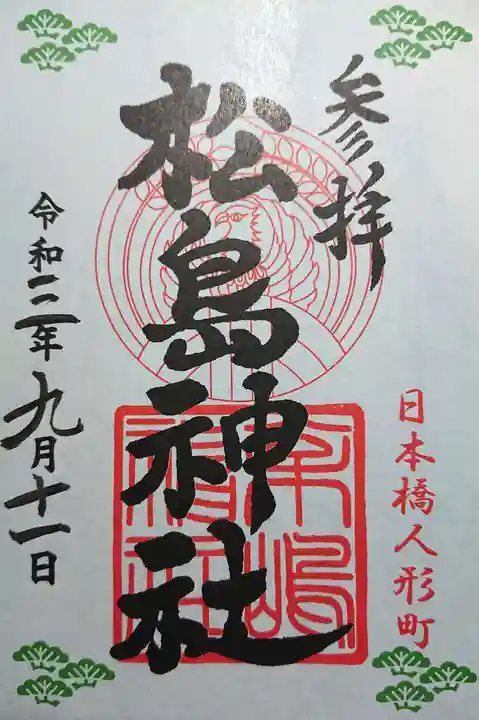 参拝
日本橋人形町
松島神社
令和三年九月十一日